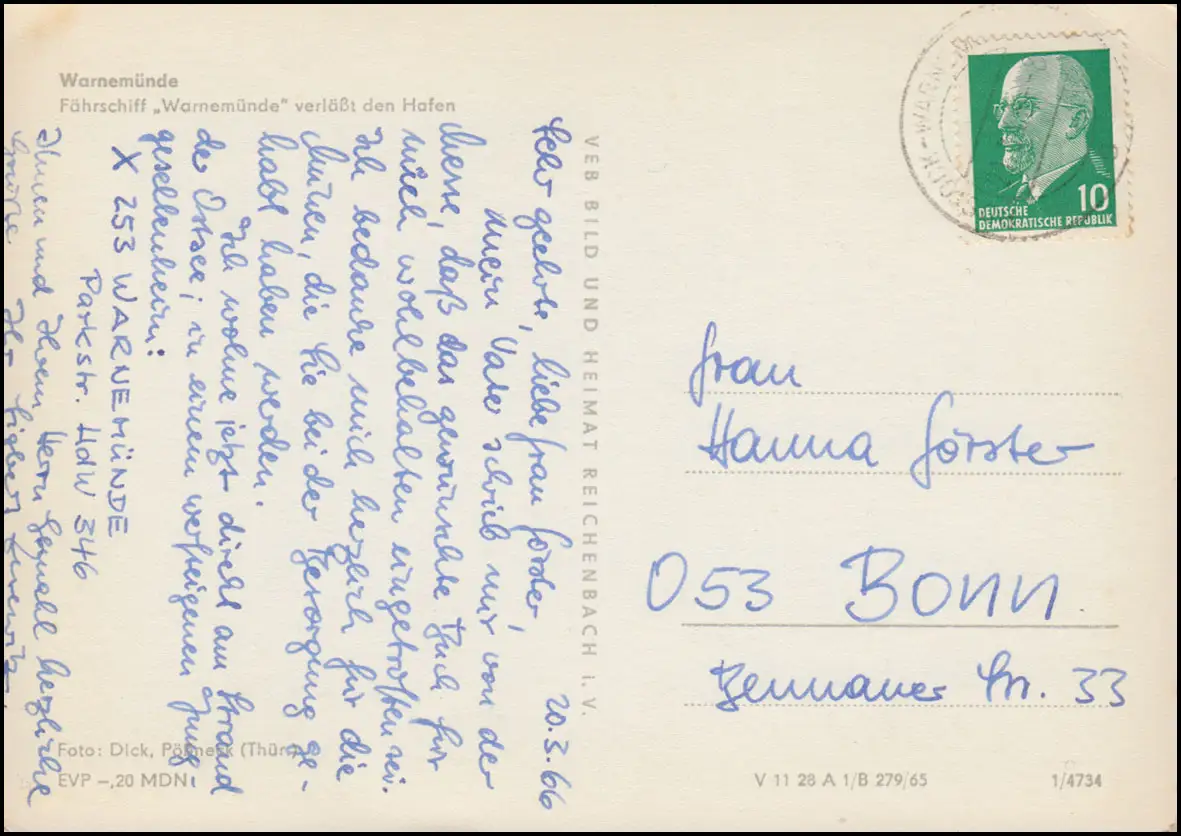 Warnemünde
Fährschiff „Warnemünde" verläßt den Hafen
20.3.66
Sehr geehrte, liebe Frau Förster,
Mein Vater schrieb mir von der
Messe, daß das gewünschte Buch für
mich wohlbehalten eingetroffen sei.
Ich bedanke mich herzlich für die
Mühen, die Sie bei der Besorgung ge-
habt haben werden.
Ich wohne jetzt direkt am Strand
der Ostsee; in einem werfteigenen Jung
gesellenheim:
X 253 WARNEMÜNDE
Parkstr. HdW 346
Ihnen und Ihrem Herrn Gemahl herzliche
Grüße Ihr
VEB BILD UND HEIMAT REICHENBACH i. V.
Foto: Dick, Pößneck (Thür.)
EVP –,20 MDN
10
DEUTSCHE
DEMOKRATISCHE REPUBLIK
Frau
Hanna Förster
053 Bonn
Bennauer Str. 33
V 11 28 A 1/B 279/65
1/4734